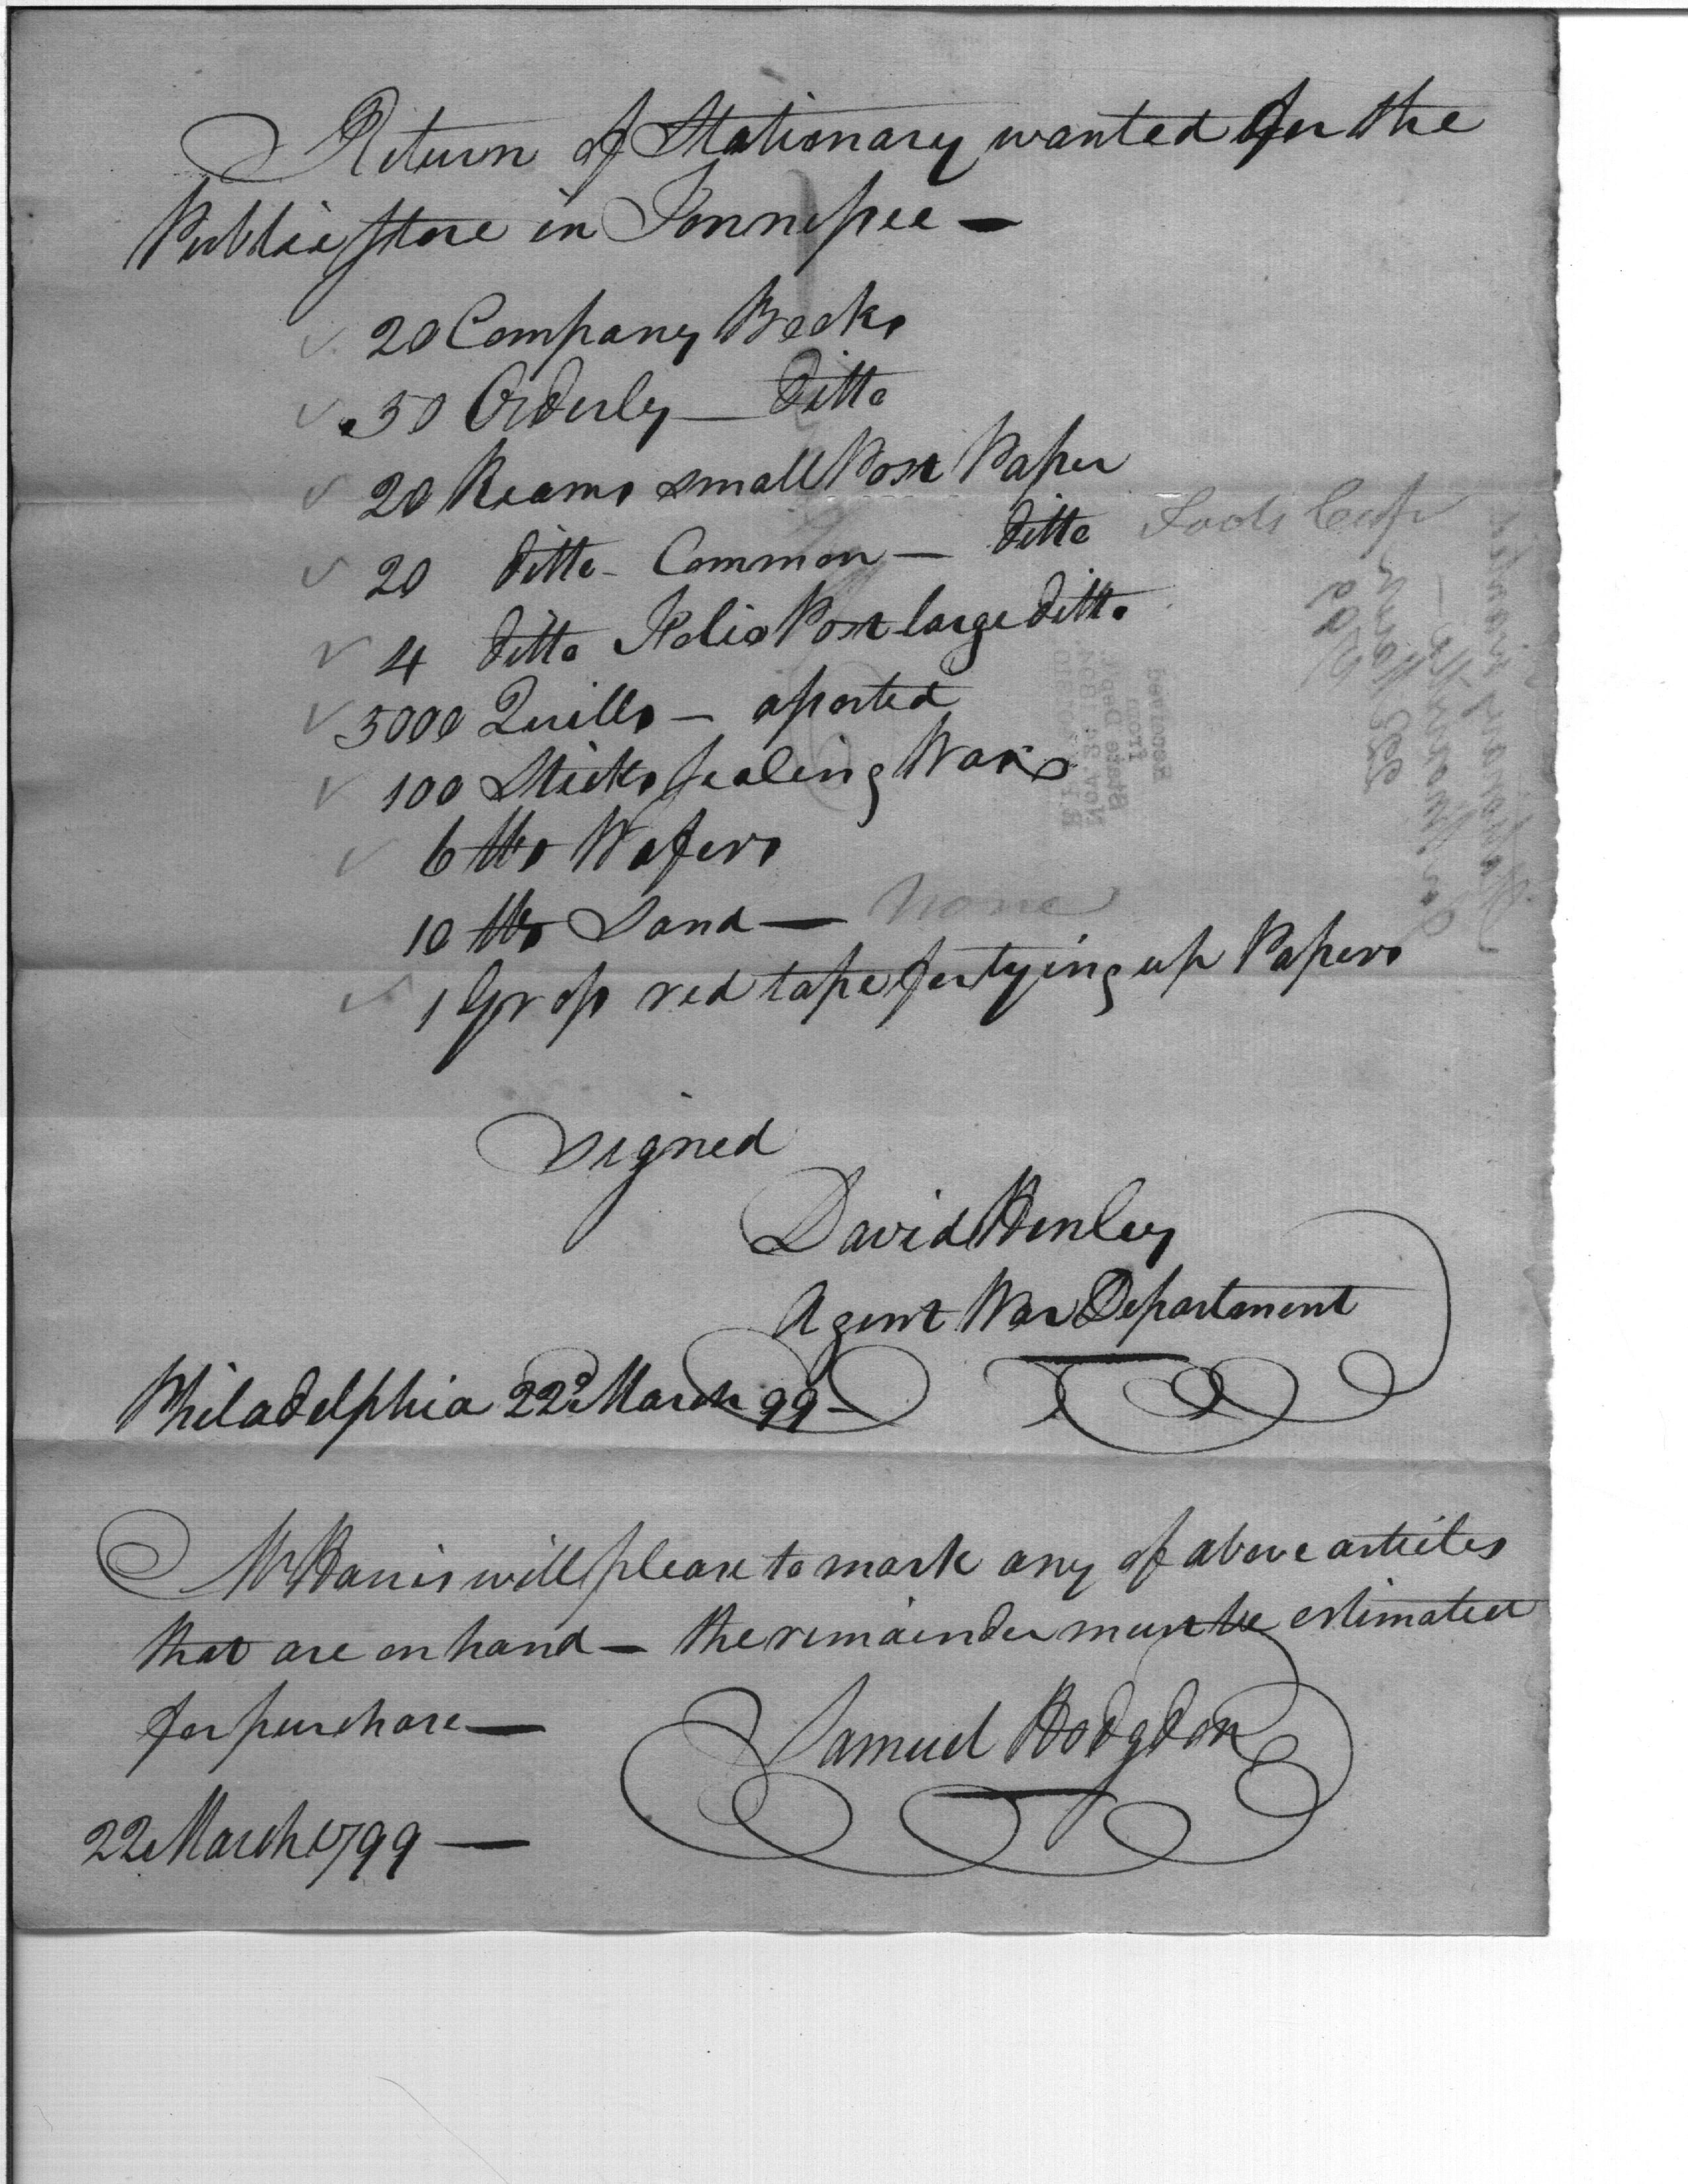 Return of Stationary wanted for the
Public Store in Tennessee —
✓ 20 Company Books
✓ 50 Orderly — ditto
✓ 20 Reams small Post Paper
✓ 20 ditto - Common — ditto Fools Cap
✓ 4 ditto Folio Post large ditto
✓ 5000 Quills — assorted
✓ 100 Sticks Sealing Wax
✓ 6 lbs Wafers
10 lbs Sand — None
✓ 1 Gross red tape for tying up Papers
Signed
David Henley
Agent War Department
Philadelphia 22d March 99 -
Mr Harris will please to mark any of above articles
that are on hand — the remainder must be estimated
for purchase —
Samuel Hodgdon
22 March 1799 —
Received
from
State Dept.
Nov. 24 1894